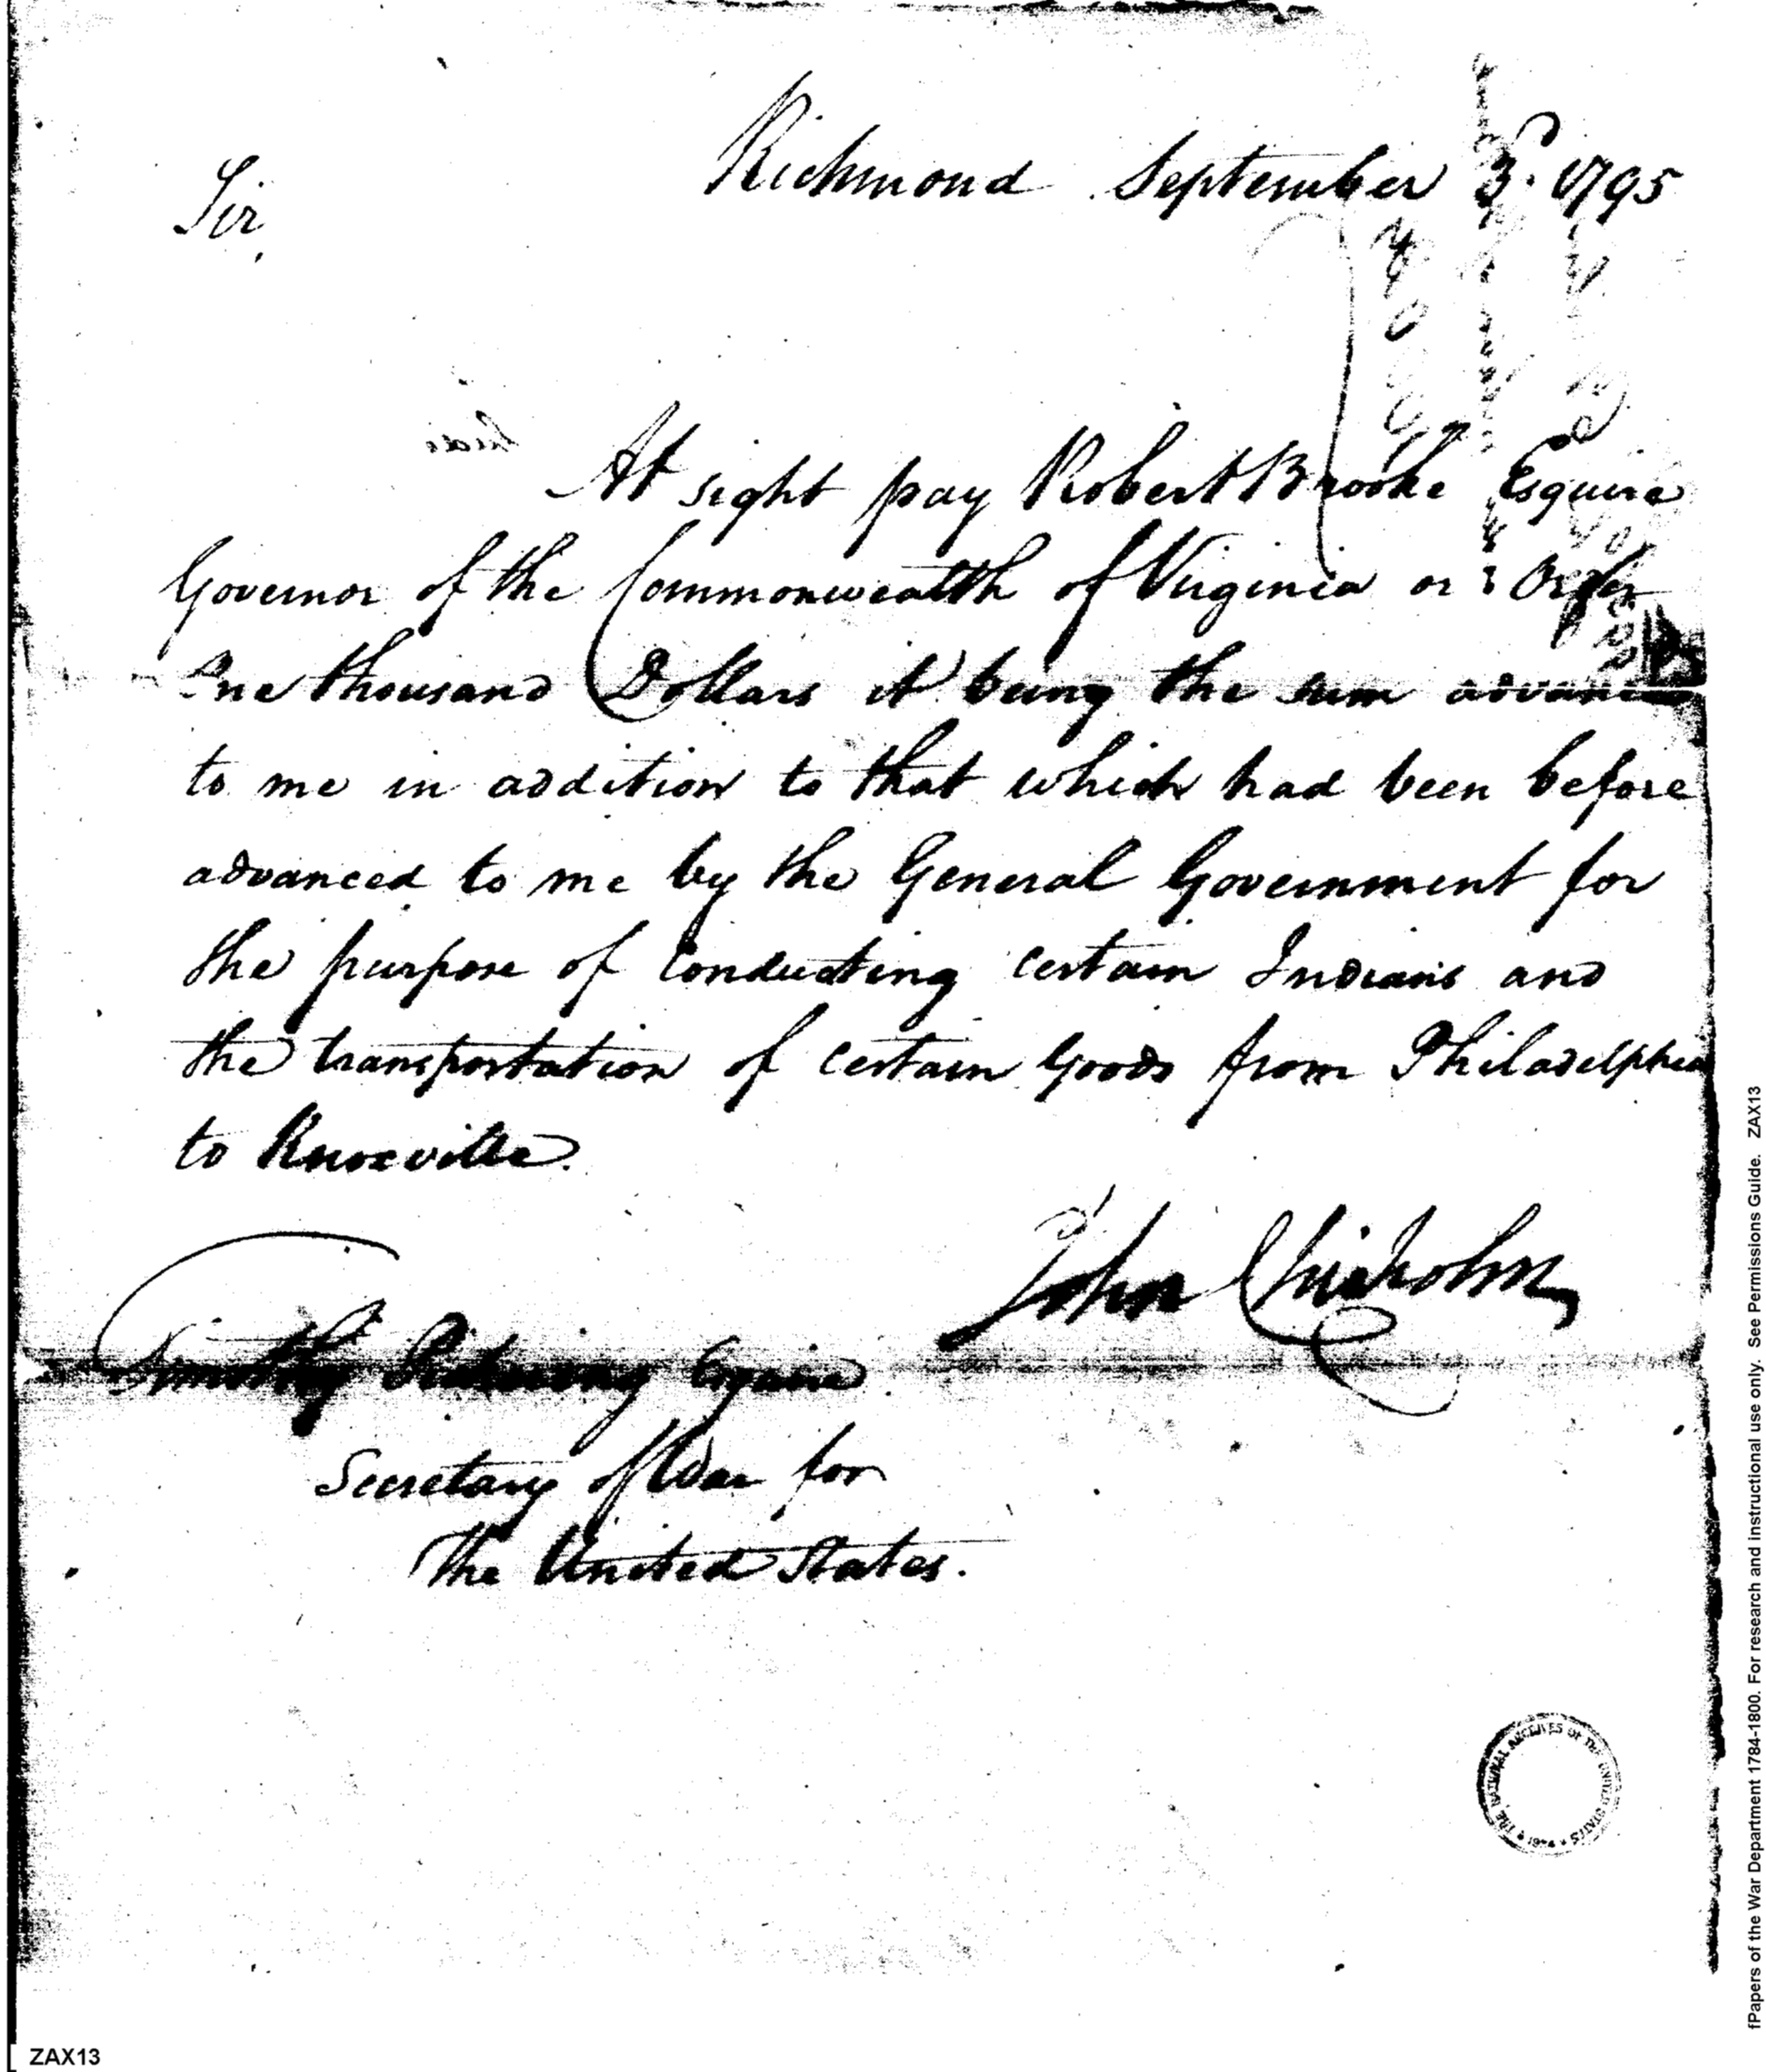 Richmond September 3d. 1795
Sir,
At sight pay Robert Brooke Esquire
Governor of the Commonwealth of Virginia or Order
One thousand Dollars it being the sum advanc
to me in addition to that which had been before
advanced to me by the General Government for
the purpose of conducting certain Indians and
the transportation of certain Goods from Philadelphia
to Knoxville.
John Chisholm
Timothy Pickering Esquire
Secretary of War for
The United States.
THE NATIONAL ARCHIVES OF THE UNITED STATES
ZAX13
fPapers of the War Department 1784-1800. For research and instructional use only. See Permissions Guide. ZAX13